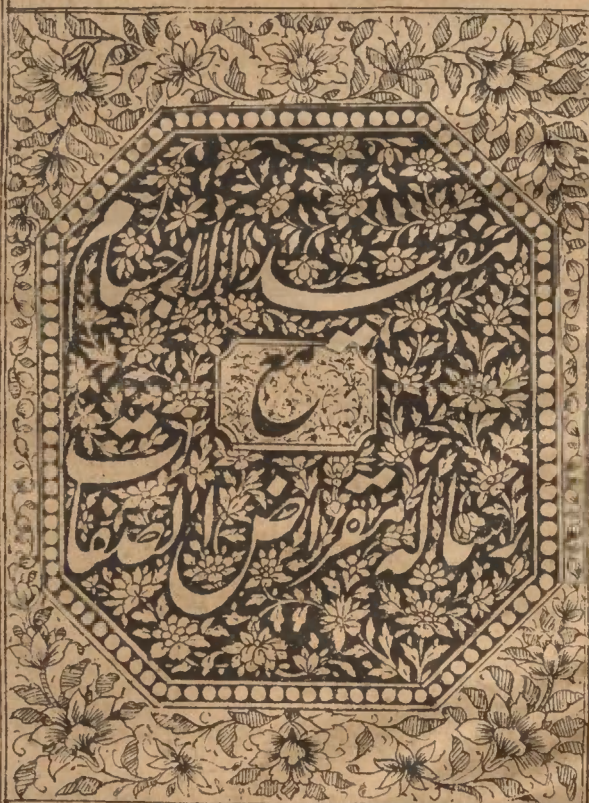 مفید الاجسام
مع
رساله مقراض الصفات